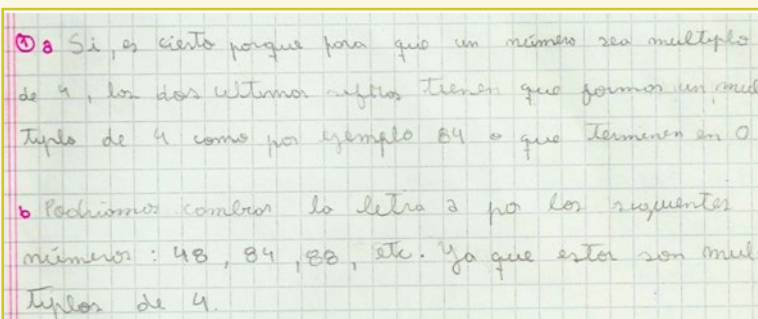 ① a Si, es cierto porque para que un número sea multiplo
de 4, los dos ultimas cifras tienen que formar un mul
tiplo de 4 como por ejemplo 84 o que terminen en 0
b Podriamos cambiar la letra a por los siguientes
números: 48, 84, 88, etc. Ya que estos son mul
tiplos de 4.